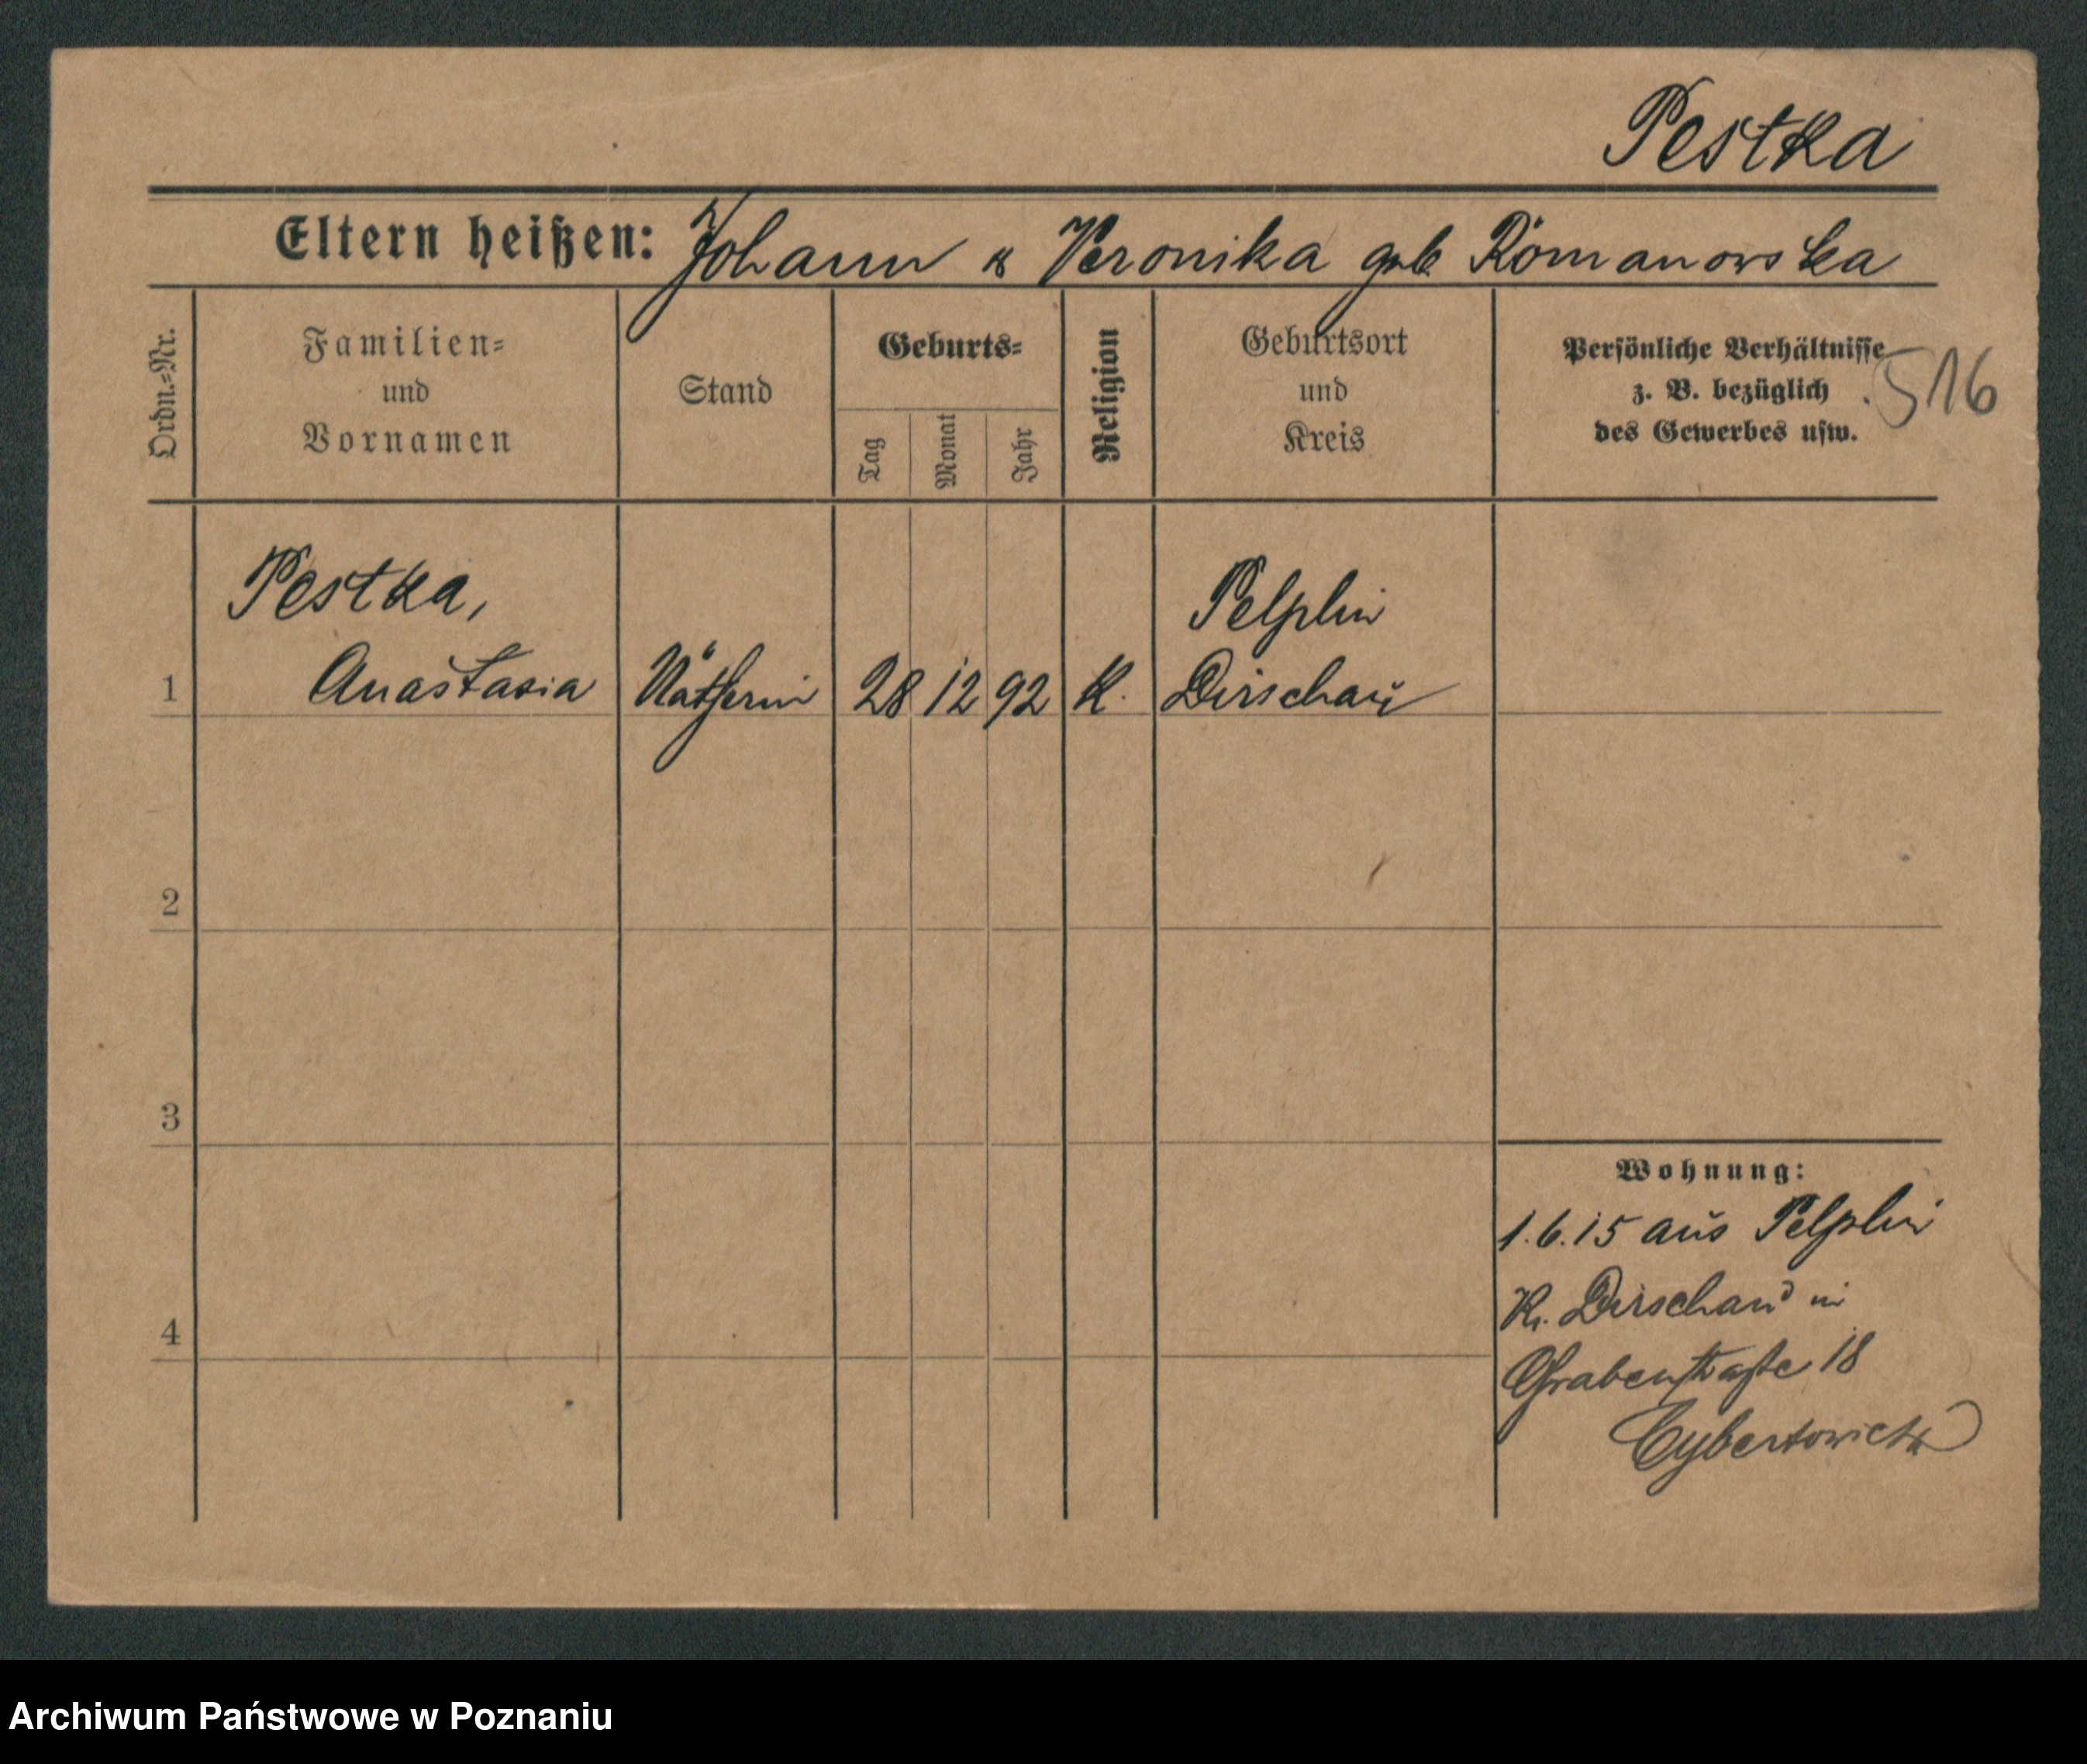 Pestka
Eltern heißen: Johann & Veronika geb Romanowska
Ordn.=Nr.
Familien=
und
Vornamen
Stand
Geburts=
Tag
Monat
Jahr
Religion
Geburtsort
und
Kreis
Persönliche Verhältnisse
z. B. bezüglich
des Gewerbes usw.
516
Pestka,
Pelplin
1 Anastasia Nätherin 28 12 92 K. Dirschau
2
3
Wohnung:
1.6.15 aus Pelplin
Kr. Dirschau in
4
Grabenstraße 18
Archiwum Państwowe w Poznaniu